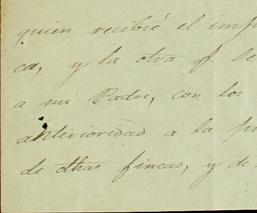 quien recibió el imp
ca, y la otra qe. le
a mi Padre, con los
anterioridad á la
de dhas fincas, y de